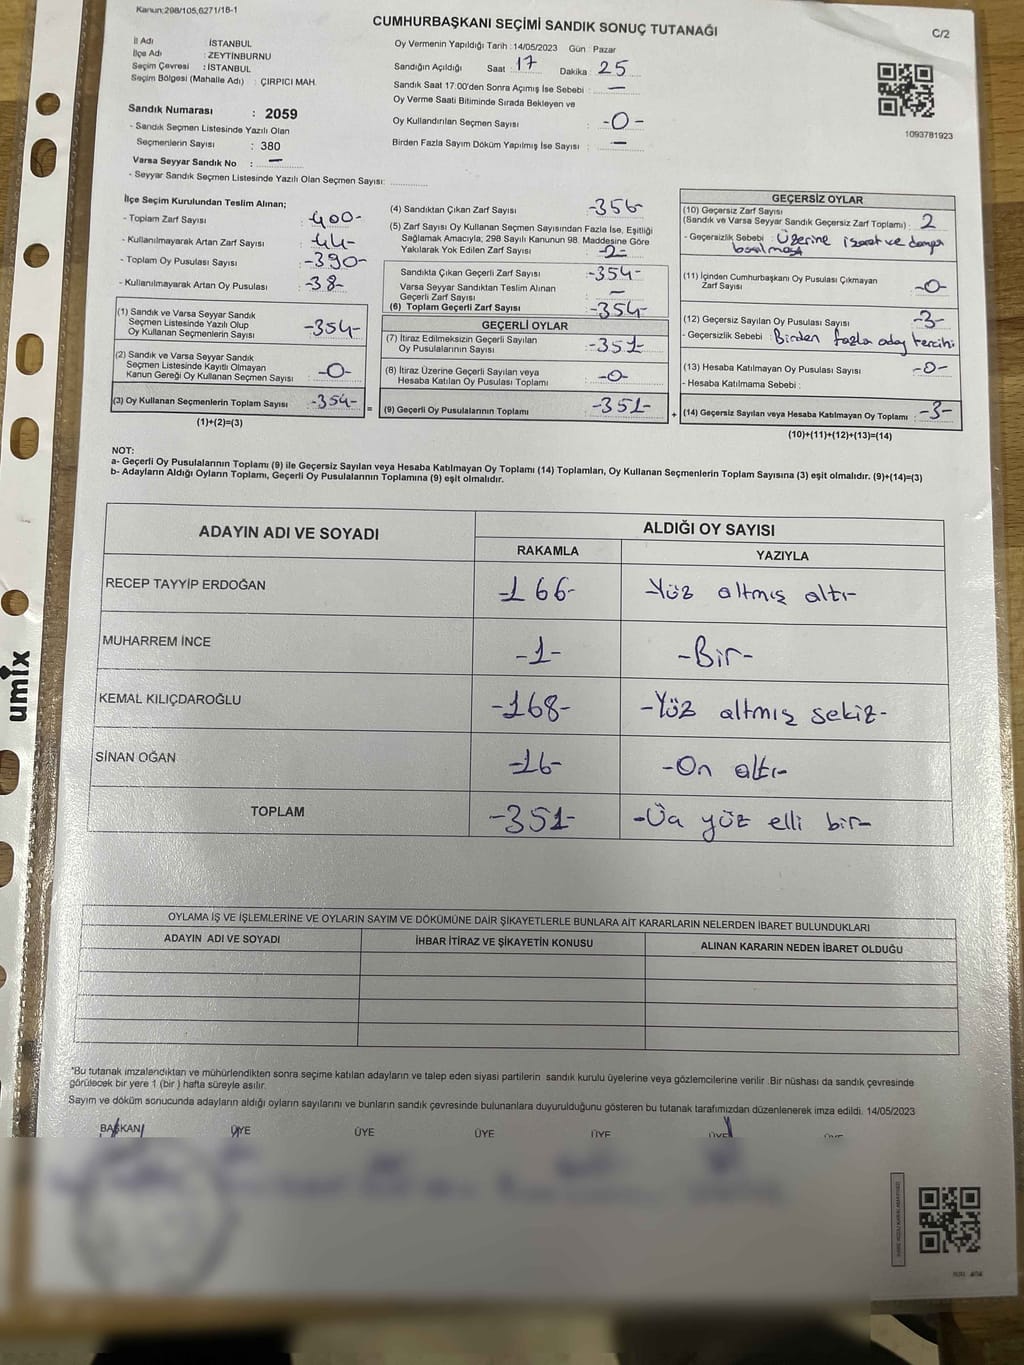 Kanun:298/105,6271/18-1
CUMHURBAŞKANI SEÇİMİ SANDIK SONUÇ TUTANAĞI
C/2
İl Adı : İSTANBUL
İlçe Adı : ZEYTİNBURNU
Seçim Çevresi : İSTANBUL
Seçim Bölgesi (Mahalle Adı) : ÇIRPICI MAH.
Sandık Numarası : 2059
- Sandık Seçmen Listesinde Yazılı Olan
Seçmenlerin Sayısı : 380
Varsa Seyyar Sandık No : —
- Seyyar Sandık Seçmen Listesinde Yazılı Olan Seçmen Sayısı:
Oy Vermenin Yapıldığı Tarih :14/05/2023 Gün : Pazar
Sandığın Açıldığı Saat 17 Dakika : 25
Sandık Saat 17:00'den Sonra Açımış İse Sebebi : —
Oy Verme Saati Bitiminde Sırada Bekleyen ve
Oy Kullandırılan Seçmen Sayısı : -0-
Birden Fazla Sayım Döküm Yapılmış İse Sayısı : —
1093781923
İlçe Seçim Kurulundan Teslim Alınan;
- Toplam Zarf Sayısı : 400-
- Kullanılmayarak Artan Zarf Sayısı : -44-
- Toplam Oy Pusulası Sayısı : -390-
- Kullanılmayarak Artan Oy Pusulası : -38-
(1) Sandık ve Varsa Seyyar Sandık
Seçmen Listesinde Yazılı Olup
Oy Kullanan Seçmenlerin Sayısı : -354-
(2) Sandık ve Varsa Seyyar Sandık
Seçmen Listesinde Kayıtlı Olmayan
Kanun Gereği Oy Kullanan Seçmen Sayısı : -0-
(3) Oy Kullanan Seçmenlerin Toplam Sayısı : -354-
(1)+(2)=(3)
=
(4) Sandıktan Çıkan Zarf Sayısı : -356-
(5) Zarf Sayısı Oy Kullanan Seçmen Sayısından Fazla İse, Eşitliği
Sağlamak Amacıyla, 298 Sayılı Kanunun 98. Maddesine Göre
Yakılarak Yok Edilen Zarf Sayısı : -2-
Sandıkta Çıkan Geçerli Zarf Sayısı : -354-
Varsa Seyyar Sandıktan Teslim Alınan
Geçerli Zarf Sayısı : —
(6) Toplam Geçerli Zarf Sayısı : -354-
GEÇERLİ OYLAR
(7) İtiraz Edilmeksizin Geçerli Sayılan
Oy Pusulalarının Sayısı : -351-
(8) İtiraz Üzerine Geçerli Sayılan veya
Hesaba Katılan Oy Pusulası Toplamı : -0-
(9) Geçerli Oy Pusulalarının Toplamı : -351-
+
GEÇERSİZ OYLAR
(10) Geçersiz Zarf Sayısı
(Sandık ve Varsa Seyyar Sandık Geçersiz Zarf Toplamı) : 2
- Geçersizlik Sebebi : Üzerine işaret ve damga
basılması
(11) İçinden Cumhurbaşkanı Oy Pusulası Çıkmayan
Zarf Sayısı : -0-
(12) Geçersiz Sayılan Oy Pusulası Sayısı : -3-
- Geçersizlik Sebebi : Birden fazla aday tercihi
(13) Hesaba Katılmayan Oy Pusulası Sayısı : -0-
- Hesaba Katılmama Sebebi :
(14) Geçersiz Sayılan veya Hesaba Katılmayan Oy Toplamı : -3-
(10)+(11)+(12)+(13)=(14)
NOT:
a- Geçerli Oy Pusulalarının Toplamı (9) ile Geçersiz Sayılan veya Hesaba Katılmayan Oy Toplamı (14) Toplamları, Oy Kullanan Seçmenlerin Toplam Sayısına (3) eşit olmalıdır. (9)+(14)=(3)
b- Adayların Aldığı Oyların Toplamı, Geçerli Oy Pusulalarının Toplamına (9) eşit olmalıdır.
ADAYIN ADI VE SOYADI
ALDIĞI OY SAYISI
RAKAMLA YAZIYLA
RECEP TAYYİP ERDOĞAN -166- -Yüz altmış altı-
MUHARREM İNCE -1- -Bir-
KEMAL KILIÇDAROĞLU -168- -Yüz altmış sekiz-
SİNAN OĞAN -16- -On altı-
TOPLAM -351- -Üç yüz elli bir-
umix
OYLAMA İŞ VE İŞLEMLERİNE VE OYLARIN SAYIM VE DÖKÜMÜNE DAİR ŞİKAYETLERLE BUNLARA AİT KARARLARIN NELERDEN İBARET BULUNDUKLARI
ADAYIN ADI VE SOYADI İHBAR İTİRAZ VE ŞİKAYETİN KONUSU ALINAN KARARIN NEDEN İBARET OLDUĞU
*Bu tutanak imzalandıktan ve mühürlendikten sonra seçime katılan adayların ve talep eden siyasi partilerin sandık kurulu üyelerine veya gözlemcilerine verilir .Bir nüshası da sandık çevresinde
görülecek bir yere 1 (bir ) hafta süreyle asılır.
Sayım ve döküm sonucunda adayların aldığı oyların sayılarını ve bunların sandık çevresinde bulunanlara duyurulduğunu gösteren bu tutanak tarafımızdan düzenlenerek imza edildi. 14/05/2023
BAŞKAN ÜYE ÜYE ÜYE ÜYE ÜYE